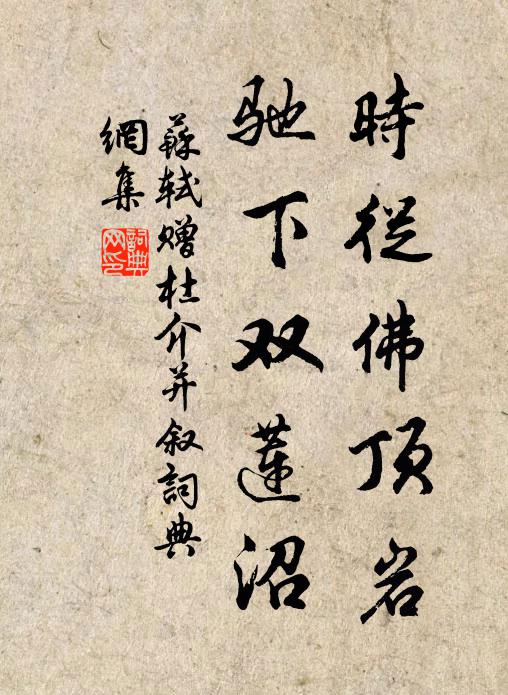 時從佛顶岩
驰下双蓮沼
蘇轼赠杜介并叙詞典
網集
詞典
网印